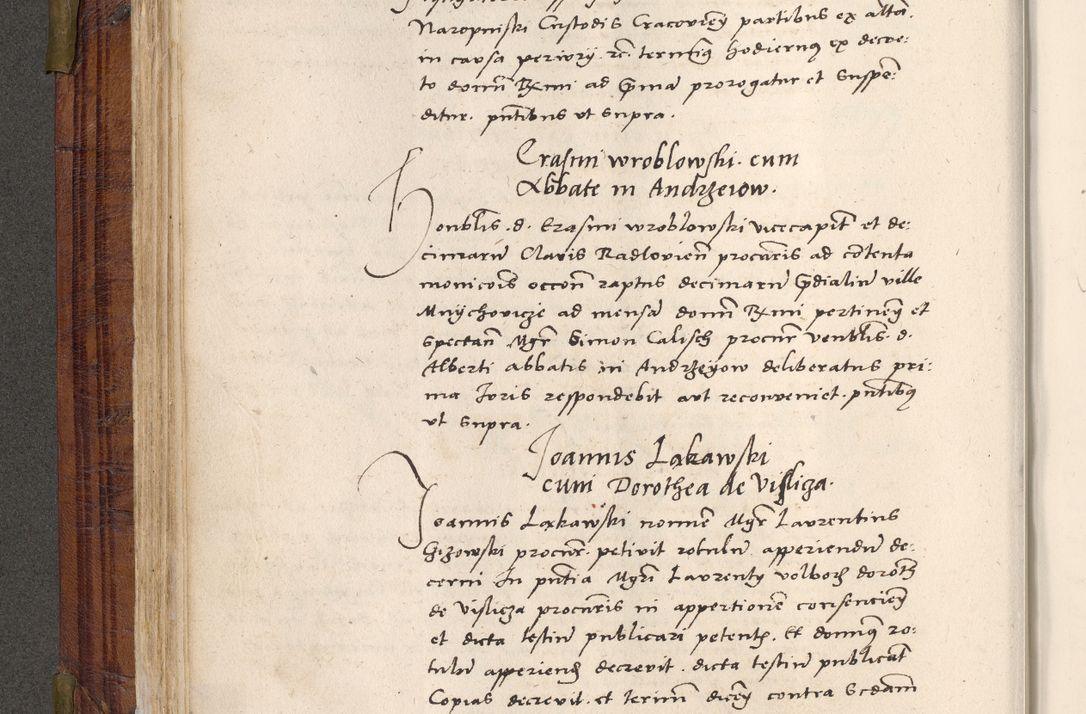 Naropniski Custodis Cracovień partibus ex alta.
in causa periorij rc. terminus hodiernus ex decre:
to domini Rmi ad primā prorogatur et suspē:
ditur. pntibus ut supra.
Erasmi wroblowski. cum
Abbate in Andrzeiow.
Honblis. d. Erasmi wroblowski vicecapit et de:
cimarū Clavis Radlovień procuris ad cōtenta
monicois occoń raptus decimarū pdialiū ville
Mnychovicze ad mensā domń Rxmi pertineń et
spectań Mgr Simon Calisch procur venblis. d.
Alberti abbatis in Andrzeyow deliberatus pri:
ma Juris respondebit aut reconveniet. pntibus
ut supra.
Joannis Ląkawski
cum Dorothea de Visliza.
Joannis Ląkawski nomine Mgr Laurentius
Gizowski procur. petivit rotulū apperiendū de:
cerni In pntia Mgri Laurentij volborz doroth
de Visliza procuris in appertionē consencień
et dicta testiū publicari petentis. Et dominus ro:
tulū apperiend decrevit. dicta testiū publicat
Copias decrevit. et terminū dicen contra Scdam